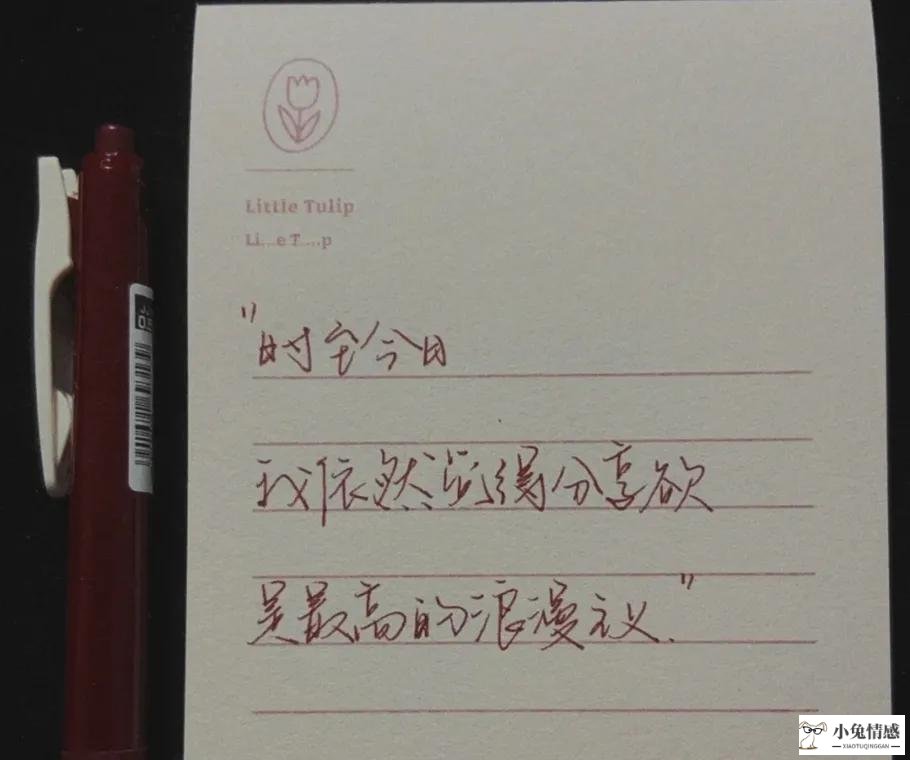 Little Tulip
Li...e T....p
"时至今日
我依然觉得分享欲
是最高的浪漫主义."
小兔情感
XIAOTUQINGGAN